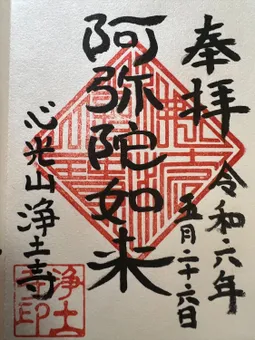 奉拝
令和六年
五月二十六日
阿弥陀如来
心光山 浄土寺
浄土
寺印